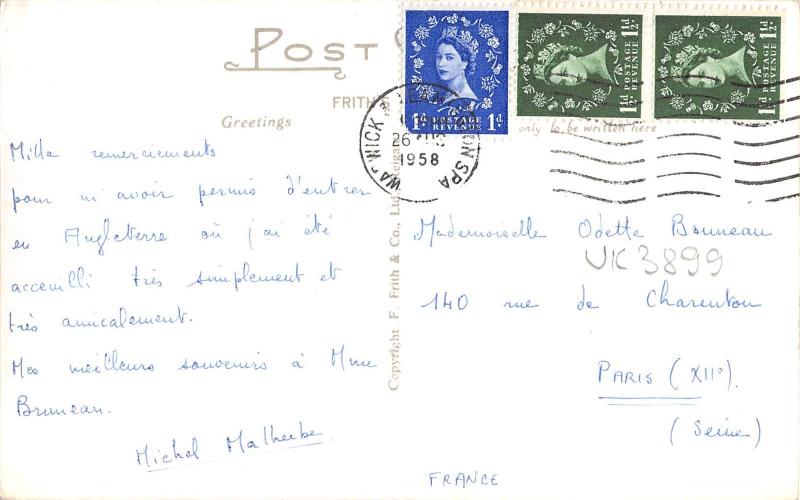 POST
FRITH'S
Greetings
only to be written here
1D POSTAGE REVENUE 1D
1½D POSTAGE REVENUE 1½D
1½D POSTAGE REVENUE 1½D
WARWICK & LEAMINGTON SPA
26
1958
Mille remerciements
pour m'avoir permis d'entrer
en Angleterre où j'ai été
accueilli très simplement et
très amicalement.
Mes meilleurs souvenirs à Mme
Bruneau.
Michel Malherbe
Copyright F. Frith & Co., Ltd. Reigate
Mademoiselle Odette Bruneau
UK3899
140 rue de Charenton
PARIS (XII°).
(Seine)
FRANCE